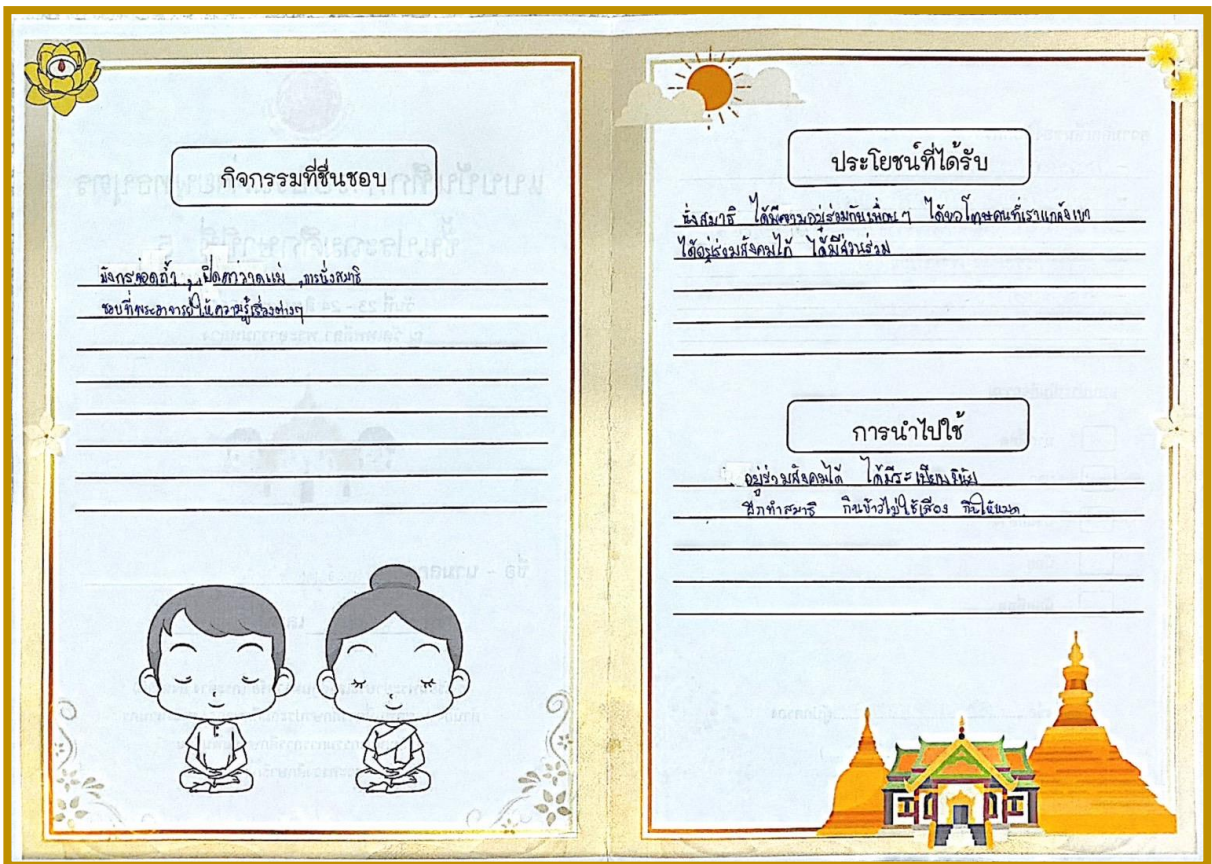 กิจกรรมที่ชื่นชอบ
มังกรลอดถ้ำ, เปิดตาวาดแผน, การนั่งสมาธิ
ชอบที่พระอาจารย์ให้ความรู้เรื่องต่างๆ
ประโยชน์ที่ได้รับ
นั่งสมาธิ ได้มีความอยู่ร่วมกับเพื่อนๆ ได้ขอโทษคนที่เราแกล้งเขา
ได้อยู่ร่วมสังคมได้ ได้มีส่วนร่วม
การนำไปใช้
อยู่ร่วมสังคมได้ ได้มีระเบียบวินัย
ฝึกทำสมาธิ กินข้าวไม่ใช้เสียง กินให้หมด